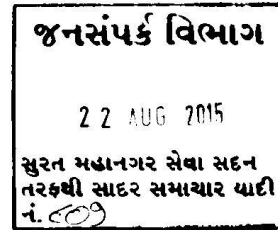 જનસંપર્ક વિભાગ
22 AUG 2015
સુરત મહાનગર સેવા સદન
તરફથી સાદર સમાચાર યાદી
નં.